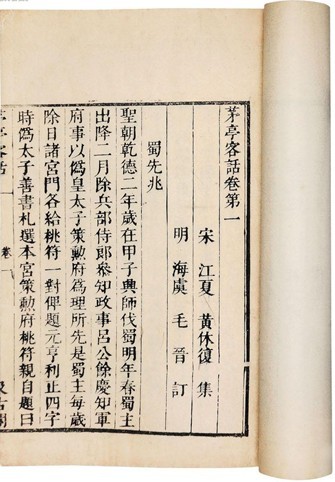 茅亭客話卷第一
宋 江夏 黃休復 集
明 海虞 毛晉 訂
蜀先兆
聖朝乾德二年歲在甲子興師伐蜀明年春蜀主
出降二月除兵部侍郎參知政事呂公餘慶知軍
府事以爲皇太子策勳府爲理所先是蜀主每歲
除日諸宮門各給桃符一對俾題元亨利正四字
時爲太子善書札選本宮策勳府桃符親自題曰
茅亭客話 卷一 汲古閣